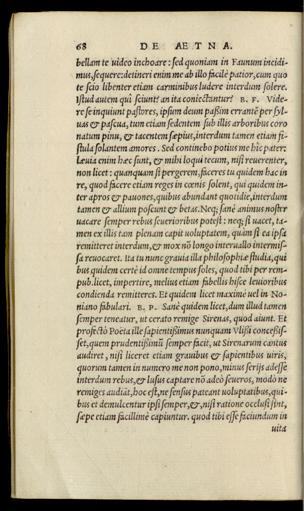 68 DE AETNA.
bellam te uideo inchoare: sed quoniam in Faunum incidi-
mus, sequere: detineri enim me ab illo facile patior, cum quo
te scio libenter etiam carminibus ludere interdum solere.
Istud autem qui sciunt? an ita coniectantur? B. F. Vide-
re se inquiunt pastores, ipsum deum passim errantē per syl-
uas & pascua, tum etiam sedentem sub illis arboribus coro
natum pinu, & tacentem sæpius, interdum tamen etiam fi-
stula solantem amores. Sed continebo potius me hîc pater:
Læuia enim hæc sunt, & mihi loqui tecum, nisi reuerenter,
non licet: quanquam si pergerem, faceres tu quidem hac in
re, quod facere etiam reges in cœnis solent, qui quidem in-
ter apros & pauones, quibus abundant quotidie, interdum
tamen & allium poscunt & betas. Neq; sanè animus nostr
uacare semper rebus seuerioribus potest: neq; si uacet, ta-
men ex illis tam plenam capit uoluptatem, quàm si ea ipsa
remitteret interdum, & mox nō longo interuallo intermis-
sa reuocaret. Ita tu nunc grauia illa philosophiæ studia, qui
bus quidem certè id omne tempus soles, quod tibi per rem-
pub. licet, impertire, melius etiam fabellis hisce leuioribus
condienda remitteres. Et quidem licet maximè uel in No-
niano fabulari. B. P. Sanè quidem licet, dum illud tamen
semper teneatur, ut cerato remige Sirenas, quod aiunt. Et
profectò Poëta ille sapientissimus nunquam Vlissi concessis-
set, quem prudentissimū semper facit, ut Sirenarum cantus
audiret, nisi liceret etiam grauibus & sapientibus uiris,
quorum tamen in numero me non pono, minus serijs adesse
interdum rebus, & lusus captare nō adeò seueros, modò ne
remiges audiāt, hoc est, ne sensus pateant uoluptatibus, qui-
bus et demulcentur ipsi semper, &, nisi ratione occlusi sint,
sæpe etiam facillimè capiuntur. quod tibi esse faciundum in
uita